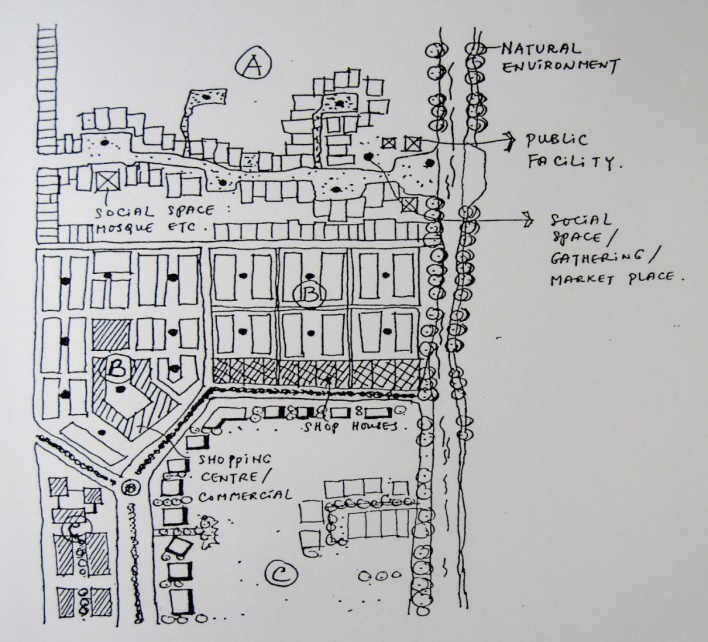 A
NATURAL
ENVIRONMENT
PUBLIC
FACILITY.
SOCIAL SPACE:
MOSQUE ETC.
SOCIAL
SPACE/
GATHERING/
MARKET PLACE.
B
B
SHOP HOUSES.
SHOPPING
CENTRE/
COMMERCIAL
C
C